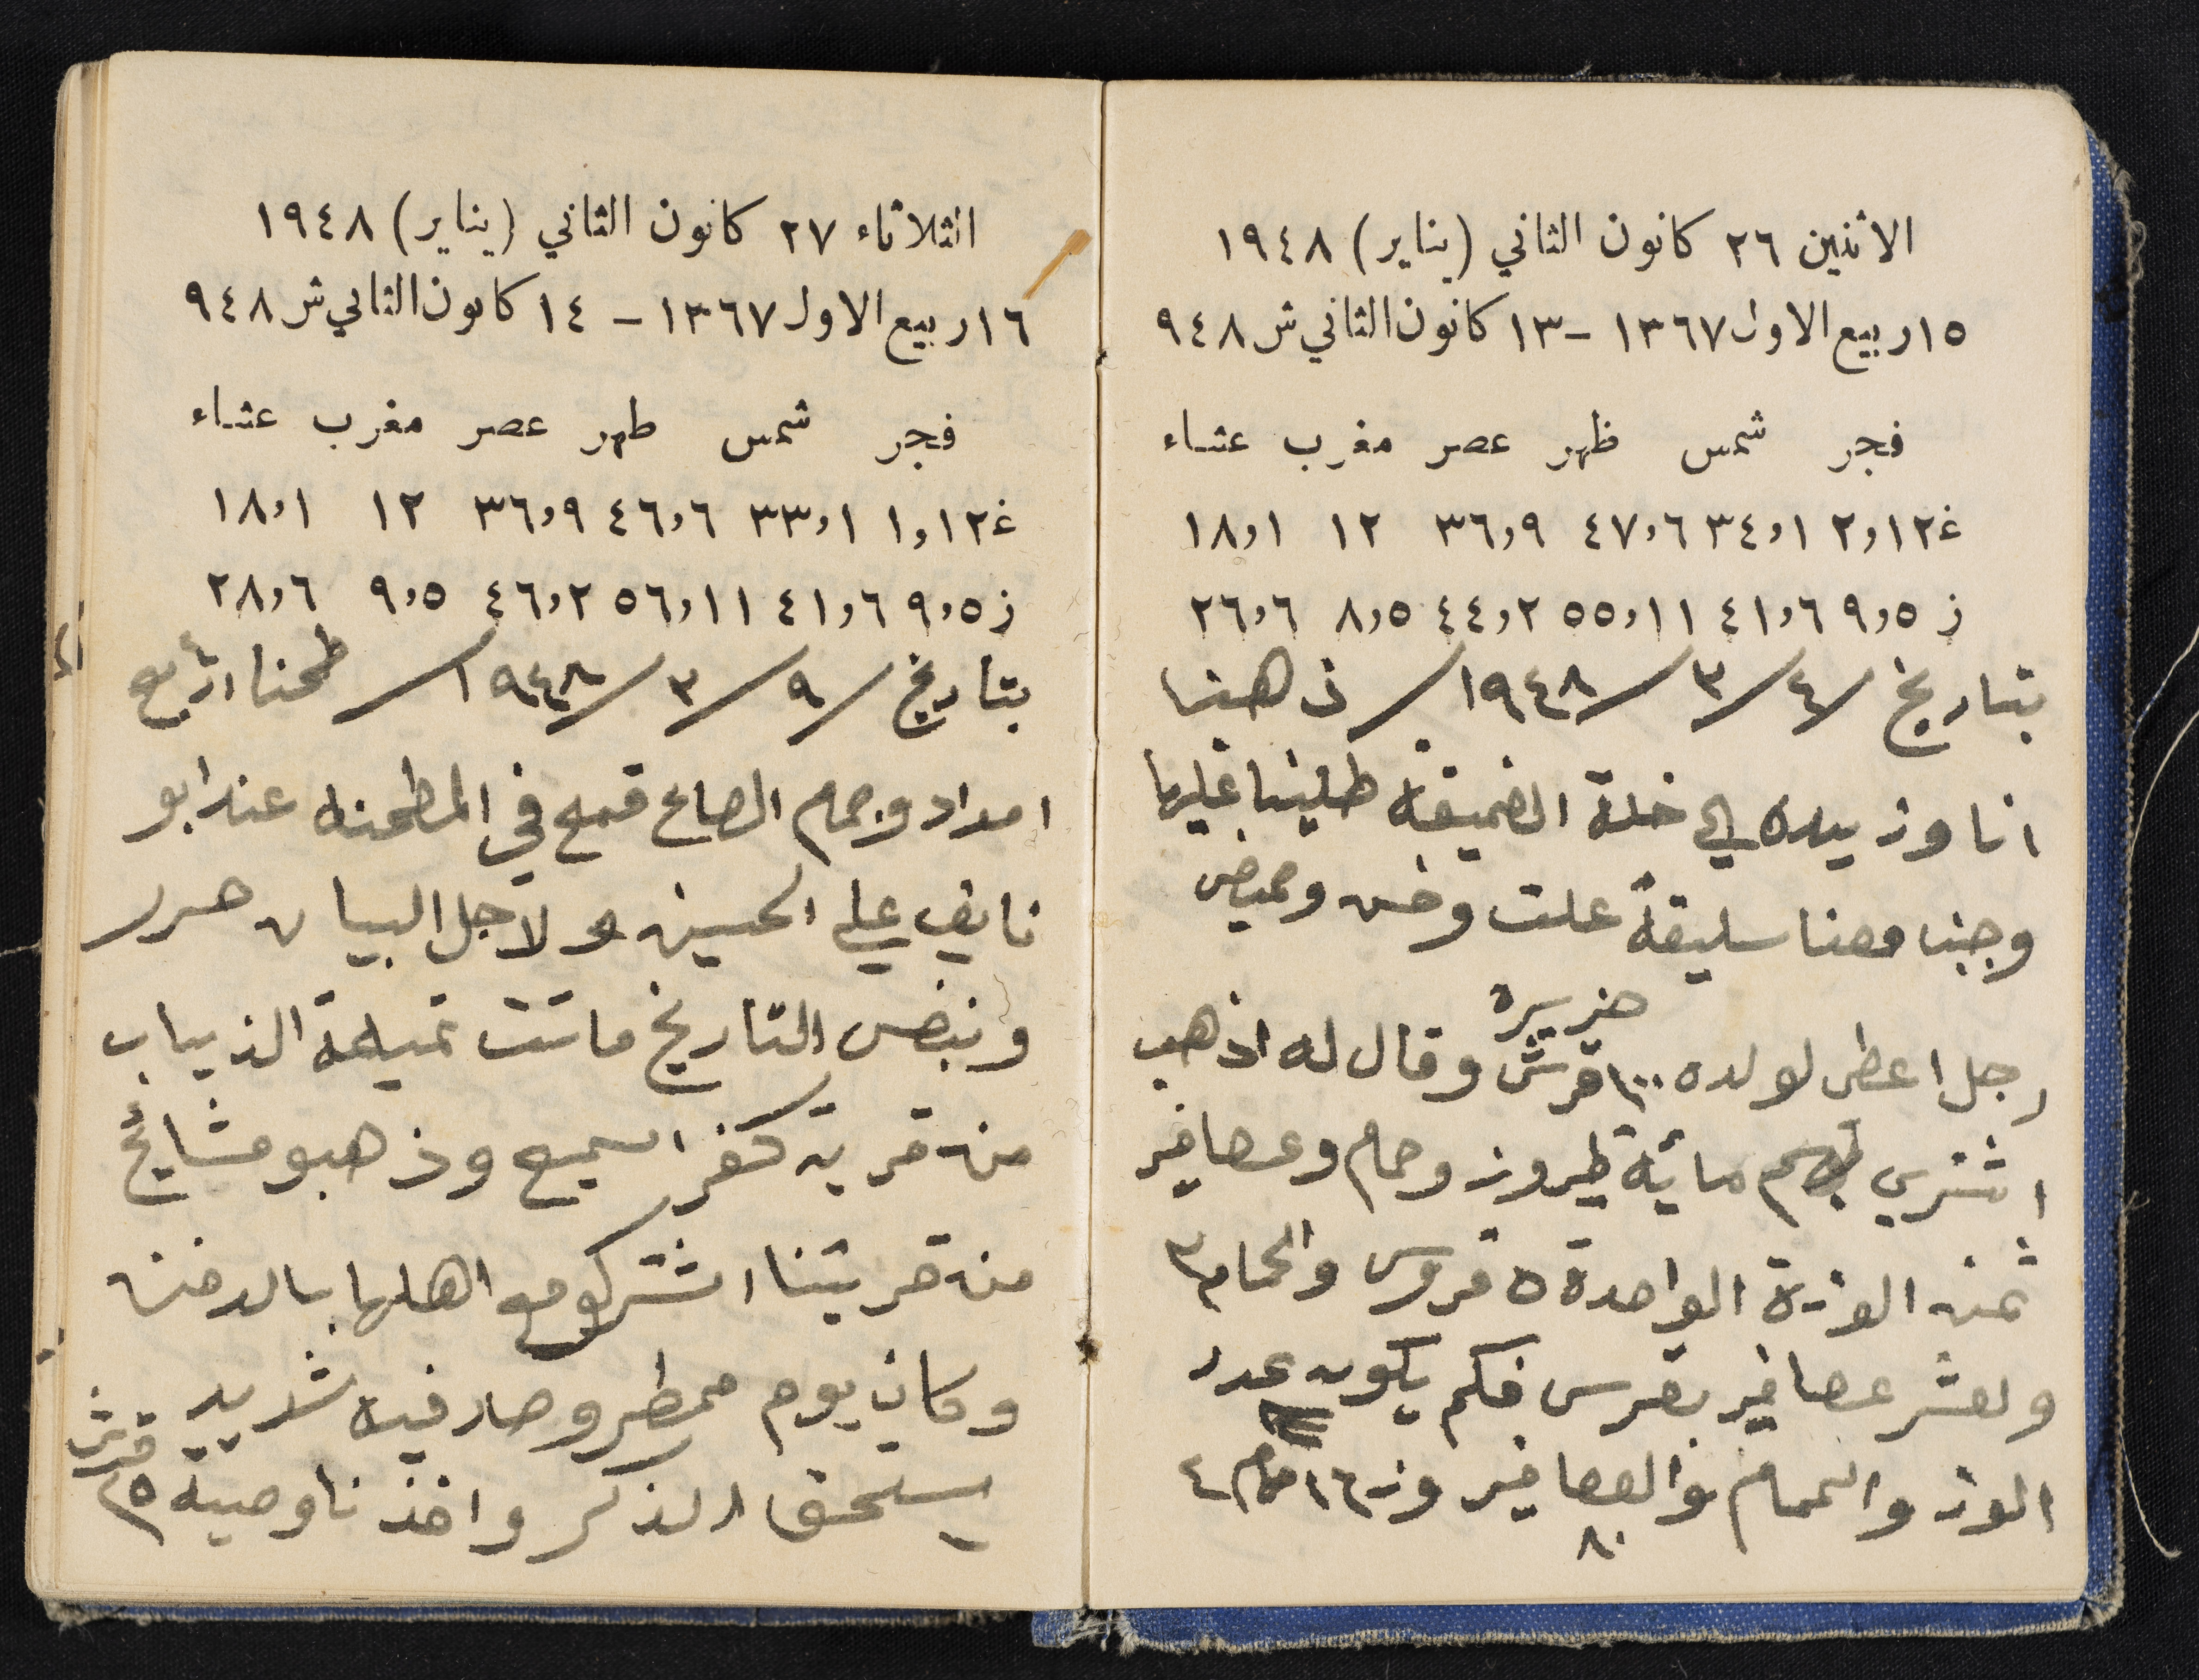 الاثنين ٢٦ كانون الثاني (يناير) ١٩٤٨
١٥ ربيع الاول ١٣٦٧ - ١٣ كانون الثاني ش ٩٤٨
فجر شمس ظهر عصر مغرب عشاء
غ ١٢,٢ ١,٣٤ ٦,٤٧ ٩,٣٦ ١٢ ١,١٨
ز ٥,٩ ٦,٤١ ١١,٥٥ ٢,٤٤ ٥,٨ ٦,٢٦
بتاريخ /٤/٣/١٩٤٨/ ذهبنا
انا وزبيده الي خلة الضميقة طلينا عليها
وجبنا معنا سليقة علت وخس وحميض
حزيره
رجل اعطى لولده ١٠٠ قرش وقال له اذهب
اشتري مائة طير وز وحمام وعصافير
ثمن الوزة الواحدة ٥ قروس والحمام ٣
ولعشر عصافير بقرس فكم يكون عدد
الوز والحمام والعصافير وز ١٦ حمام ٤
٨٠
الثلاثاء ٢٧ كانون الثاني (يناير) ١٩٤٨
١٦ ربيع الاول ١٣٦٧ - ١٤ كانون الثاني ش ٩٤٨
فجر شمس ظهر عصر مغرب عشاء
غ ١٢,١ ١,٣٣ ٦,٤٦ ٩,٣٦ ١٢ ١,١٨
ز ٥,٩ ٦,٤١ ١١,٥٦ ٢,٤٦ ٥,٩ ٦,٢٨
بتاريخ /٩/٣/١٩٤٨/ طحنا اربع
امداد وجمام الصاع قمح في المطحنه عند ابو
نايف علي الحسين ولاجل البيان حرر
وبنفس التاريخ ماتت تميمة الذياب
من قرية كفر اسميع وذهبو مشايخ
من قريتنا اشتركو مع اهلها بالدفن
وكان يوم ممطر وصار فيه شديد
يستحق الذكر واخذنا وصية ٢٥ قرش